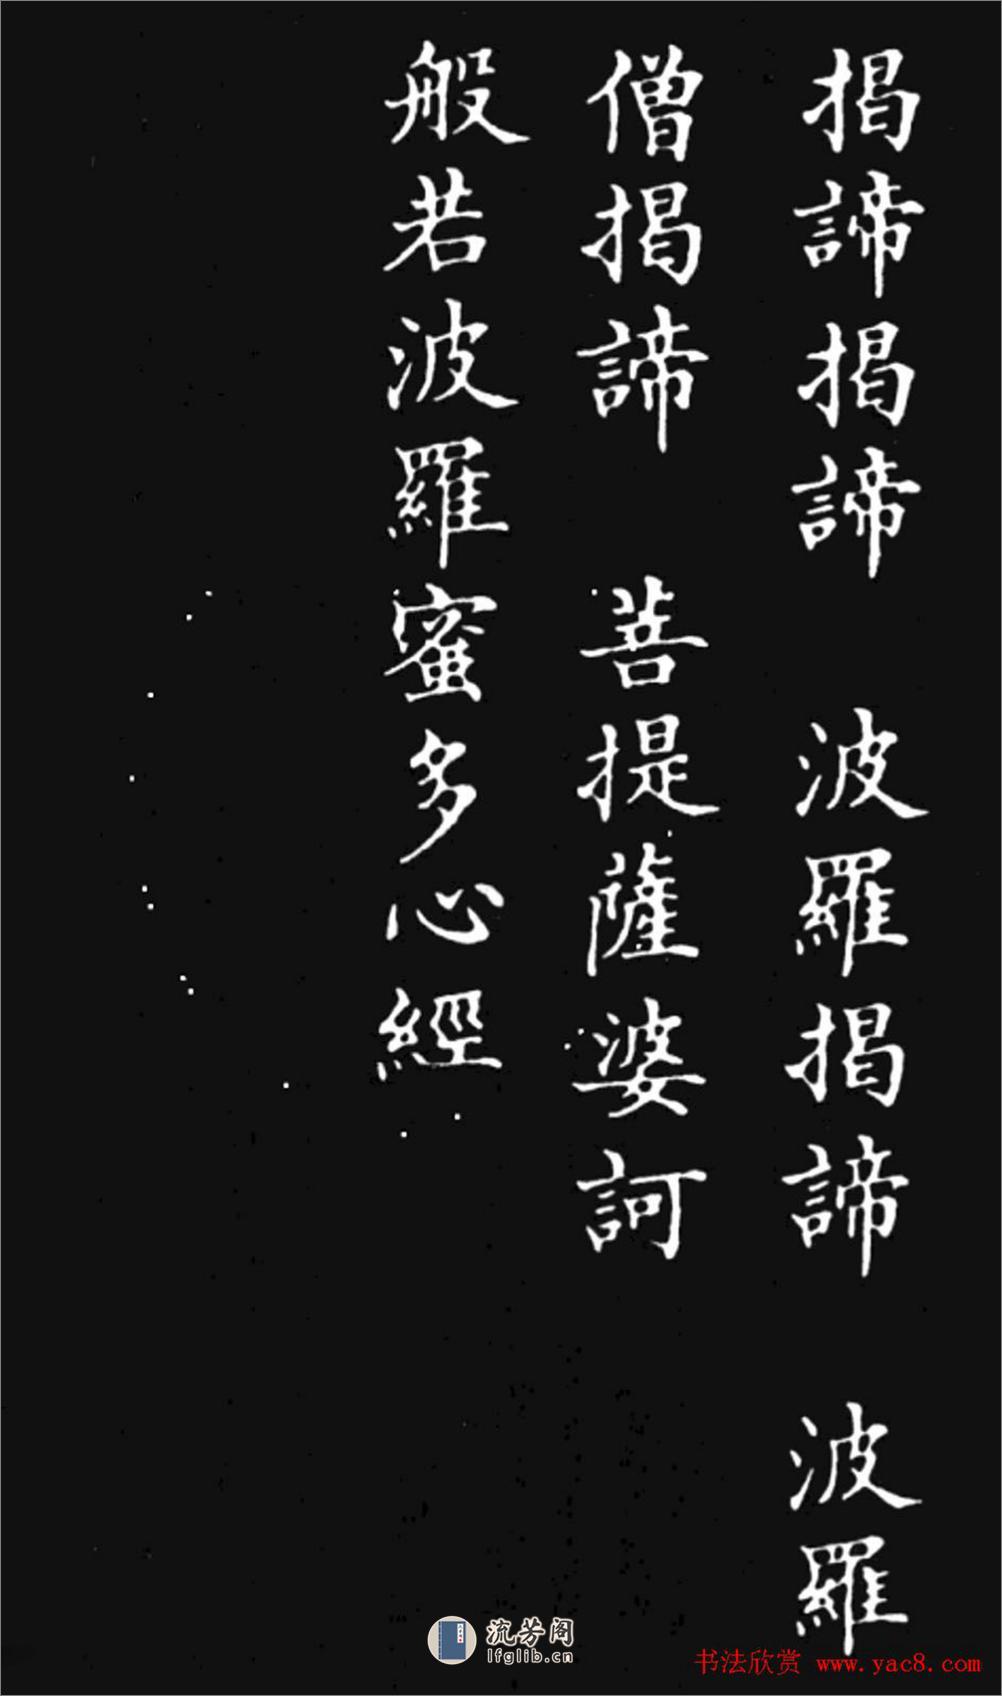 揭諦揭諦　波羅揭諦　波羅
僧揭諦　菩提薩婆訶
般若波羅蜜多心經
流芳阁
lfglib.cn
书法欣赏 www.yac8.com